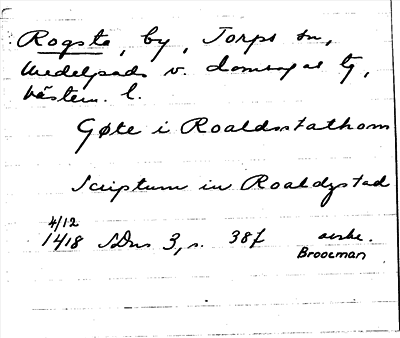 Rogsta, by, Torps sn,
Medelpads v. domsagas tg,
Västern. l.
Gøte i Roaldzstathom
Scriptum in Roaldzstad
4/12
1418 SDns 3, s. 387 avskr.
Brooeman